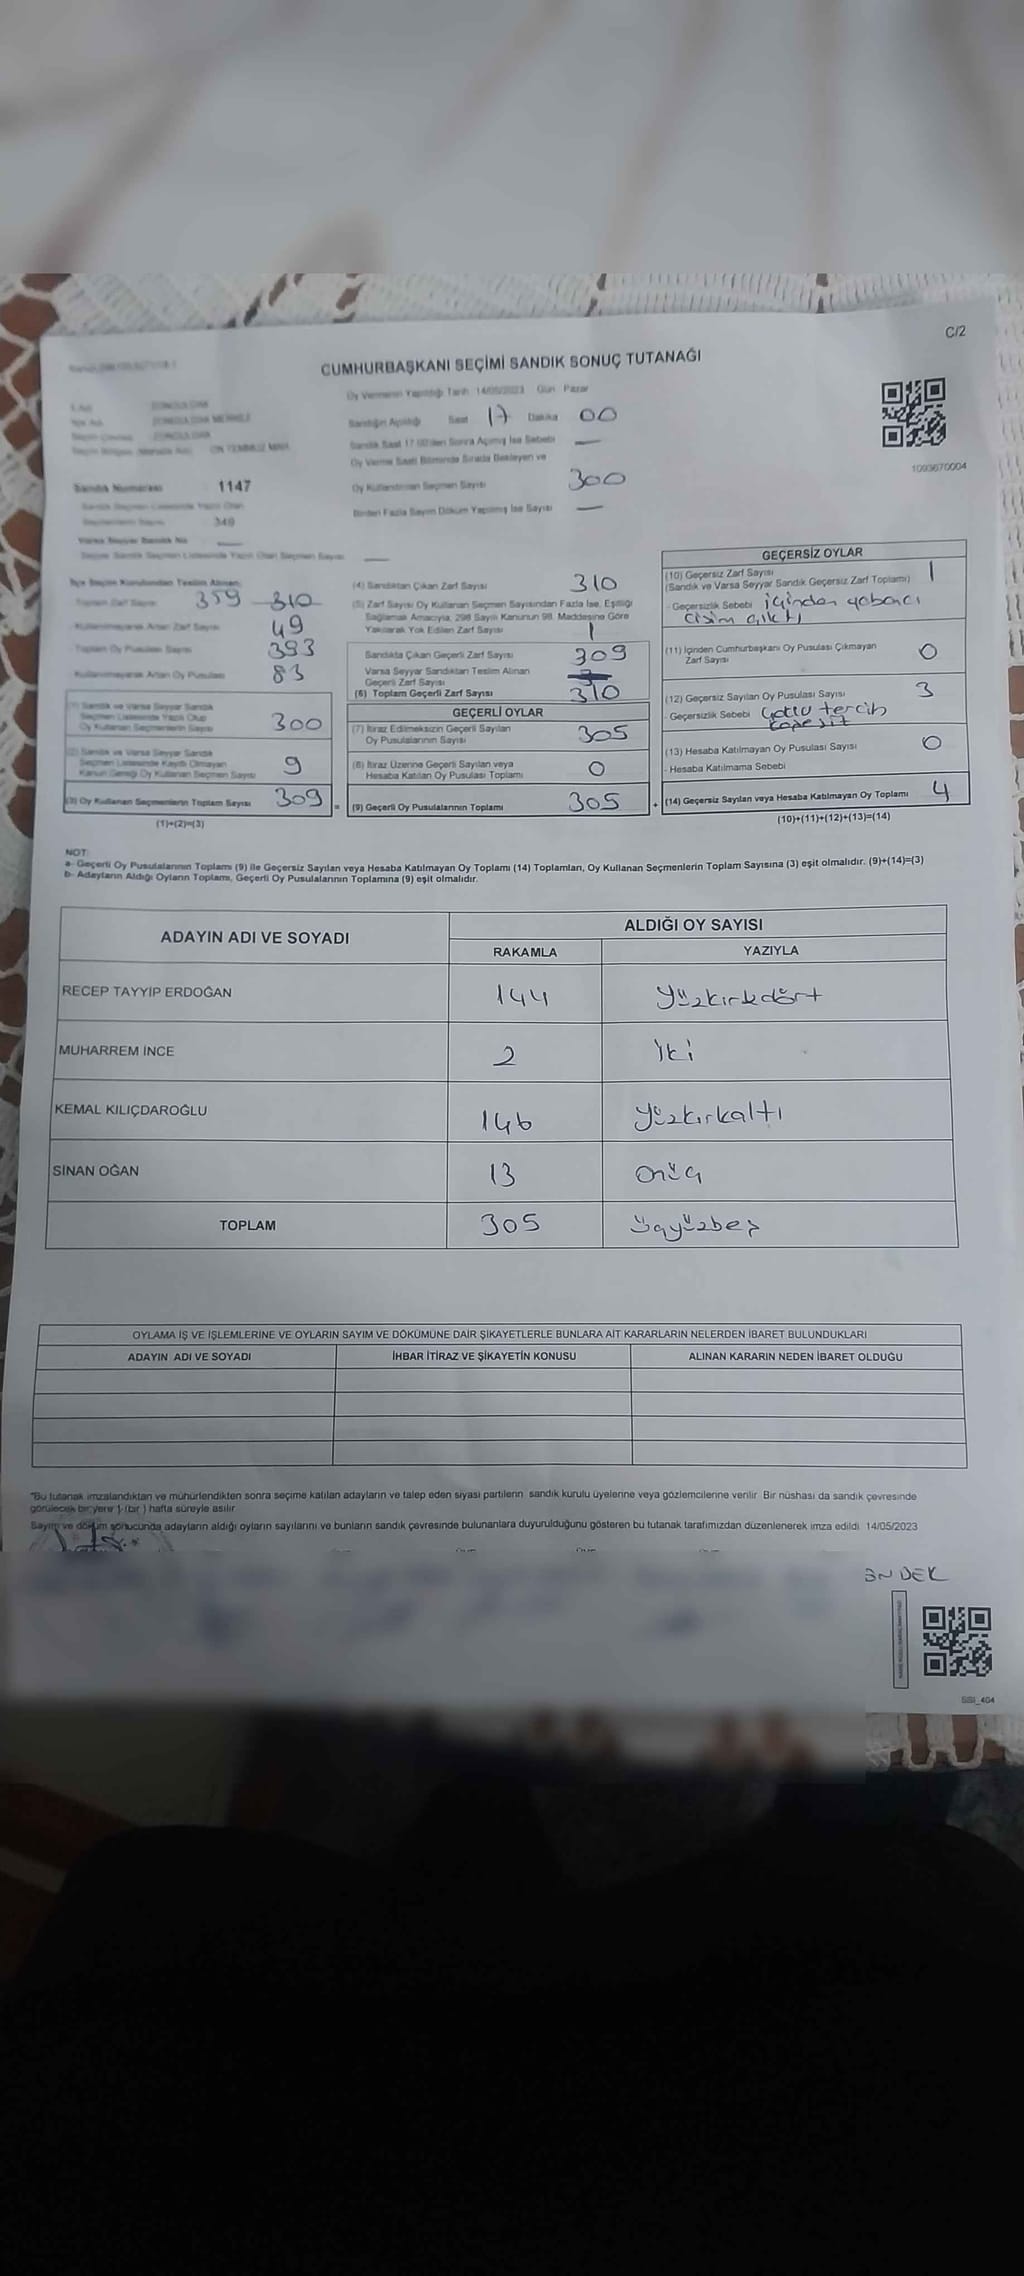 C/2
CUMHURBAŞKANI SEÇİMİ SANDIK SONUÇ TUTANAĞI
Oy Vermenin Yapıldığı Tarih 14/05/2023 Gün Pazar
Sandığın Açıldığı Saat 17 Dakika 00
Sandık Saat 17.00'den Sonra Açılmış İse Sebebi —
Oy Verme Saati Bitiminde Sırada Bekleyen ve
Oy Kullandırılan Seçmen Sayısı 300
Birden Fazla Sayım Döküm Yapılmış İse Sayısı —
1093670004
Sandık Numarası 1147
349
Varsa Seyyar Sandık No —
İlçe Seçim Kurulundan Teslim Alınan;
Toplam Zarf Sayısı 359 310
Kullanılmayarak Artan Zarf Sayısı 49
Toplam Oy Pusulası Sayısı 393
Kullanılmayarak Artan Oy Pusulası 83
(1) Sandık ve Varsa Seyyar Sandık
Seçmen Listesinde Yazılı Olup
Oy Kullanan Seçmenlerin Sayısı 300
(2) Sandık ve Varsa Seyyar Sandık
Seçmen Listesinde Kayıtlı Olmayan
Kanun Gereği Oy Kullanan Seçmen Sayısı 9
(3) Oy Kullanan Seçmenlerin Toplam Sayısı 309 =
(1)+(2)=(3)
(4) Sandıktan Çıkan Zarf Sayısı 310
(5) Zarf Sayısı Oy Kullanan Seçmen Sayısından Fazla İse, Eşitliği
Sağlamak Amacıyla, 298 Sayılı Kanunun 98. Maddesine Göre
Yakılarak Yok Edilen Zarf Sayısı 1
Sandıkta Çıkan Geçerli Zarf Sayısı 309
Varsa Seyyar Sandıktan Teslim Alınan
Geçerli Zarf Sayısı
(6) Toplam Geçerli Zarf Sayısı 310
GEÇERLİ OYLAR
(7) İtiraz Edilmeksizin Geçerli Sayılan
Oy Pusulalarının Sayısı 305
(8) İtiraz Üzerine Geçerli Sayılan veya
Hesaba Katılan Oy Pusulası Toplamı 0
(9) Geçerli Oy Pusulalarının Toplamı 305 +
GEÇERSİZ OYLAR
(10) Geçersiz Zarf Sayısı 1
(Sandık ve Varsa Seyyar Sandık Geçersiz Zarf Toplamı)
- Geçersizlik Sebebi içinden yabancı
cisim çıktı
(11) İçinden Cumhurbaşkanı Oy Pusulası Çıkmayan
Zarf Sayısı 0
(12) Geçersiz Sayılan Oy Pusulası Sayısı 3
- Geçersizlik Sebebi tercih
(13) Hesaba Katılmayan Oy Pusulası Sayısı 0
- Hesaba Katılmama Sebebi
(14) Geçersiz Sayılan veya Hesaba Katılmayan Oy Toplamı 4
(10)+(11)+(12)+(13)=(14)
NOT:
a- Geçerli Oy Pusulalarının Toplamı (9) ile Geçersiz Sayılan veya Hesaba Katılmayan Oy Toplamı (14) Toplamları, Oy Kullanan Seçmenlerin Toplam Sayısına (3) eşit olmalıdır. (9)+(14)=(3)
b- Adayların Aldığı Oyların Toplamı, Geçerli Oy Pusulalarının Toplamına (9) eşit olmalıdır.
ADAYIN ADI VE SOYADI ALDIĞI OY SAYISI
RAKAMLA YAZIYLA
RECEP TAYYİP ERDOĞAN 144 yüzkırkdört
MUHARREM İNCE 2 iki
KEMAL KILIÇDAROĞLU 146 yüzkırkaltı
SİNAN OĞAN 13 onüç
TOPLAM 305 üçyüzbeş
OYLAMA İŞ VE İŞLEMLERİNE VE OYLARIN SAYIM VE DÖKÜMÜNE DAİR ŞİKAYETLERLE BUNLARA AİT KARARLARIN NELERDEN İBARET BULUNDUKLARI
ADAYIN ADI VE SOYADI İHBAR İTİRAZ VE ŞİKAYETİN KONUSU ALINAN KARARIN NEDEN İBARET OLDUĞU
"Bu tutanak imzalandıktan ve mühürlendikten sonra seçime katılan adayların ve talep eden siyasi partilerin sandık kurulu üyelerine veya gözlemcilerine verilir. Bir nüshası da sandık çevresinde
görülecek bir yere 1 (bir ) hafta süreyle asılır.
Sayım ve döküm sonucunda adayların aldığı oyların sayılarını ve bunların sandık çevresinde bulunanlara duyurulduğunu gösteren bu tutanak tarafımızdan düzenlenerek imza edildi. 14/05/2023
NDEK
SSI_404